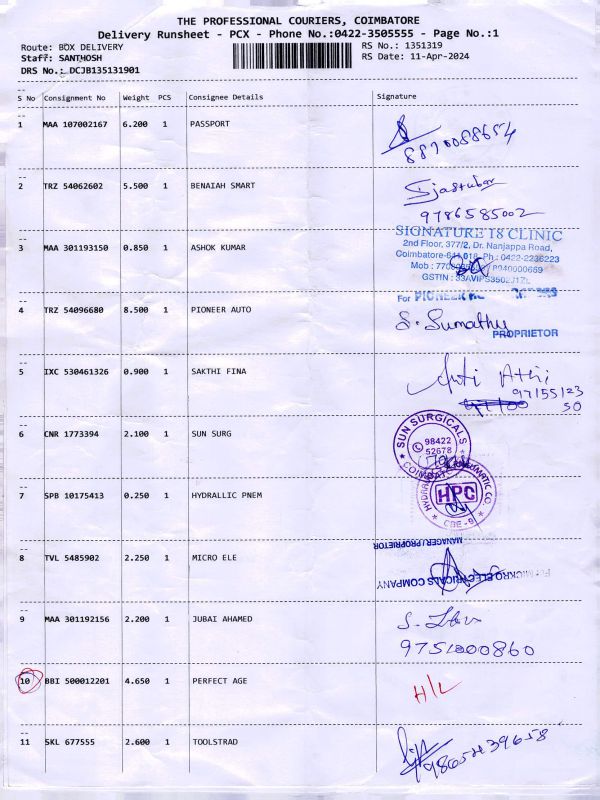 THE PROFESSIONAL COURIERS, COIMBATORE
Delivery Runsheet - PCX - Phone No.:0422-3505555 - Page No.:1
Route: BOX DELIVERY
RS No.: 1351319
Staff: SANTHOSH
RS Date: 11-Apr-2024
DRS No.: DCJB135131901
S No Consignment No Weight PCS Consignee Details Signature
1 MAA 107002167 6.200 1 PASSPORT
8870088654
2 TRZ 54062602 5.500 1 BENAIAH SMART
9786585002
SIGNATURE 18 CLINIC
3 MAA 301193150 0.850 1 ASHOK KUMAR
2nd Floor, 377/2, Dr. Nanjappa Road,
Coimbatore-641 018. Ph : 0422-2236223
Mob :
GSTIN :
For PIONEER
4 TRZ 54096680 8.500 1 PIONEER AUTO
S. Sumathy
PROPRIETOR
5 IXC 530461326 0.900 1 SAKTHI FINA
97155123
50
6 CNR 1773394 2.100 1 SUN SURG
SUN SURGICALS
98422
52678
7 SPB 10175413 0.250 1 HYDRALLIC PNEM
HPC
CBE - 9
8 TVL 5485902 2.250 1 MICRO ELE
MANAGER / PROPRIETOR
For MICKRO ELECTRICALS COMPANY
9 MAA 301192156 2.200 1 JUBAI AHAMED
9751000860
10 BBI 500012201 4.650 1 PERFECT AGE
H/L
11 SKL 677555 2.600 1 TOOLSTRAD